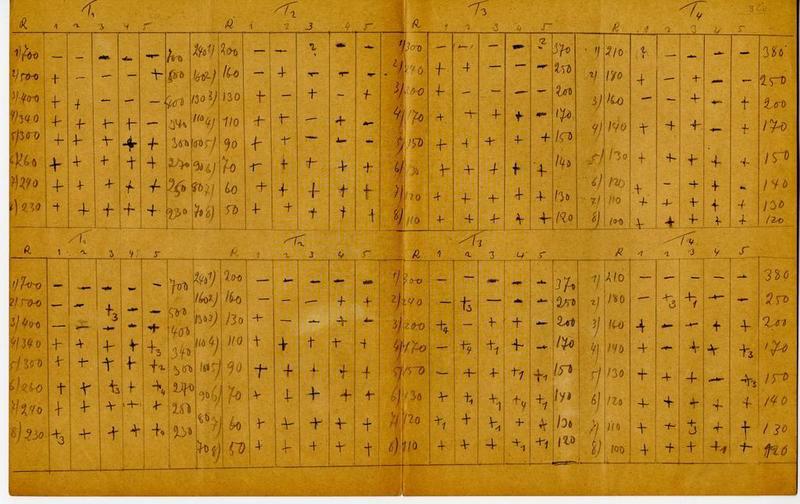 T1 T2 T3 T4
R 1 2 3 4 5 R 1 2 3 4 5 R 1 2 3 4 5 R 1 2 3 4 5
1) 700 − − − − − 700 240 1) 200 − − ? − − 1) 300 − − − − ? 370 1) 210 ? − − − − 380
2) 500 + − − − + 500 160 2) 160 − + − − − 2) 240 + + − − − 250 2) 180 + − + − − 250
3) 400 + + − − − 400 130 3) 130 + − + − + 3) 200 + + − − − 200 3) 160 − − + − + 200
4) 340 + + + + + 340 110 4) 110 + + − + − 4) 170 + − + + − 170 4) 140 + + + − + 170
5) 300 + + + + + 300 100 5) 90 + + + − − 5) 150 + + + + + 150 5) 130 + + + + + 150
6) 260 + + + + + 270 90 6) 70 + + + + + 6) 130 + + + + + 140 6) 120 + − + + + 140
7) 240 + + + + + 250 80 7) 60 + + + + + 7) 120 + + + + + 130 7) 110 + + + + + 130
8) 230 + + + + + 230 70 8) 50 + + + + + 8) 110 + + + + + 120 8) 100 + + + + + 120
T1 T2 T3 T4
R 1 2 3 4 5 R 1 2 3 4 5 R 1 2 3 4 5 R 1 2 3 4 5
1) 700 − − − − − 700 240 1) 200 − − − − − 1) 300 − − − − − 370 1) 210 − − − − − 380
2) 500 − − +3 − − 500 160 2) 160 − − − + + 2) 240 − +3 − − − 250 2) 180 − +3 +1 − − 250
3) 400 − − − − − 400 130 3) 130 + − − + − 3) 200 +4 − + + − 200 3) 160 + − − + + 200
4) 340 + + + + +3 340 110 4) 110 + + + + + 4) 170 − +4 +1 + + 170 4) 140 + − + + +3 170
5) 300 + + + + +2 300 100 5) 90 + + + + + 5) 150 − + + +1 +1 150 5) 130 + + + − +3 150
6) 260 + + +3 + +4 270 90 6) 70 + + + + + 6) 130 + +1 +1 +4 +1 140 6) 120 + + + + + 140
7) 240 + + + + + 260 80 7) 60 + + + + + 7) 120 +1 + + + + 130 7) 110 + + +3 + + 130
8) 230 +3 + + + + 230 70 8) 50 + + + + + 8) 110 + + + +1 +1 120 8) 100 + + + +1 + 120